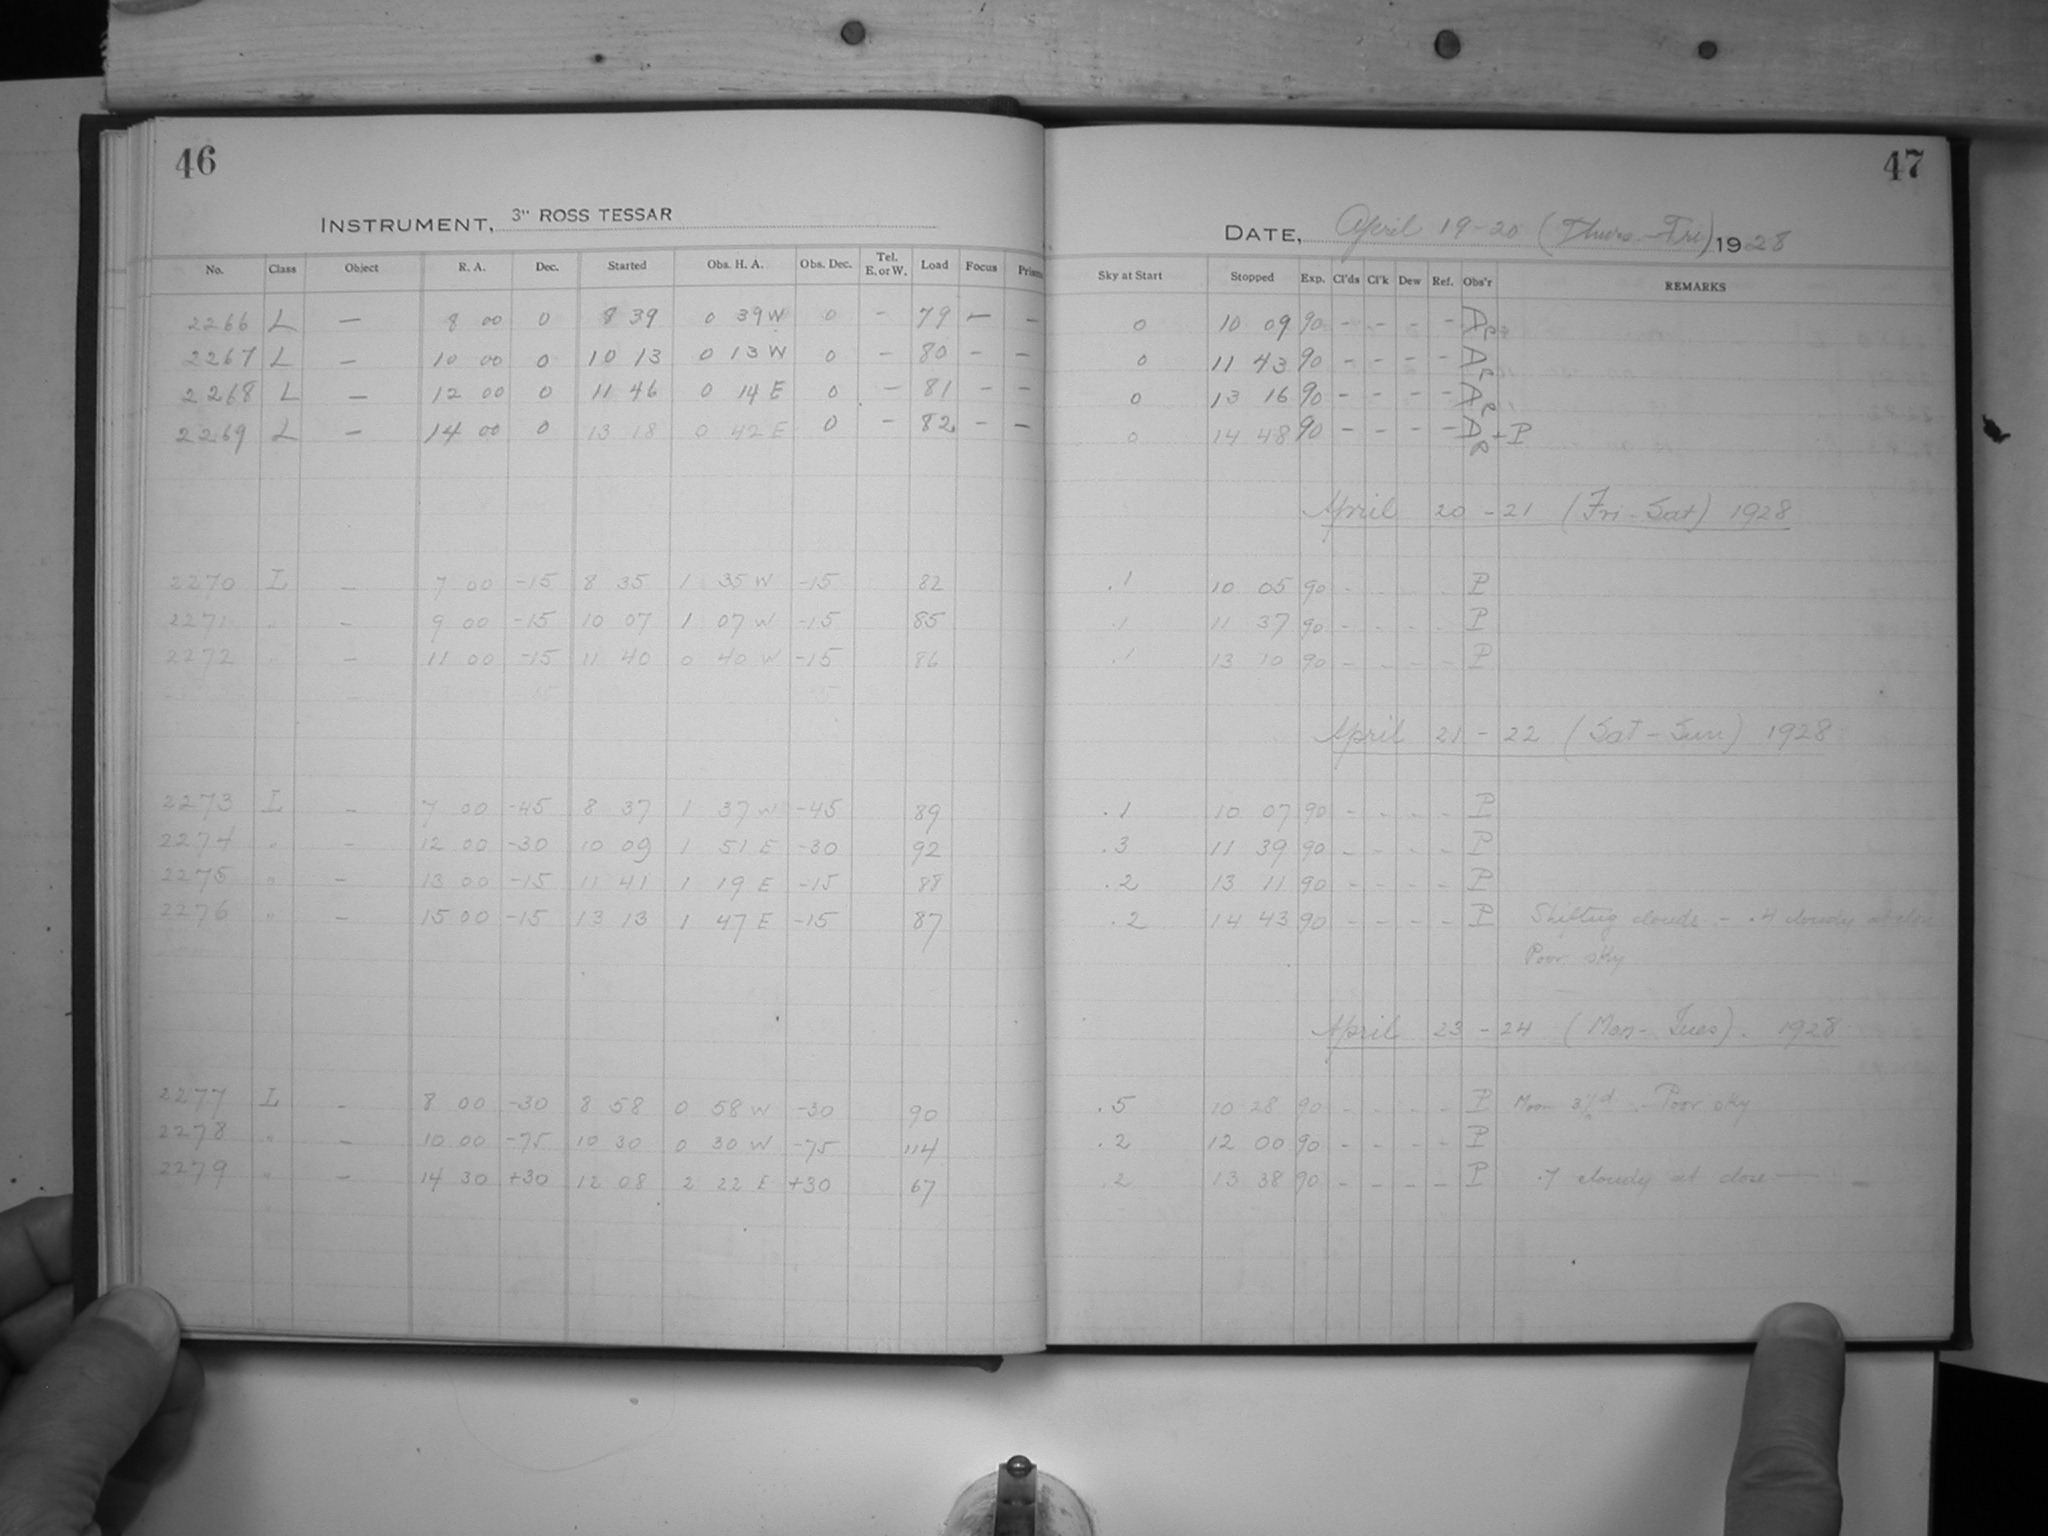 46
INSTRUMENT, 3" ROSS TESSAR
No. Class Object R. A. Dec. Started Obs. H. A. Obs. Dec. Tel. E. or W. Load Focus Prism
2266 L — 8 00 0 8 39 0 39 W 0 - 79 - -
2267 L — 10 00 0 10 13 0 13 W 0 - 80 - -
2268 L — 12 00 0 11 46 0 14 E 0 - 81 - -
2269 L — 14 00 0 13 18 0 42 E 0 - 82 - -
2270 L — 7 00 -15 8 35 1 35 W -15 82
2271 " — 9 00 -15 10 07 1 07 W -15 85
2272 " — 11 00 -15 11 40 0 40 W -15 86
2273 L — 7 00 -45 8 37 1 37 W -45 89
2274 " — 12 00 -30 10 09 1 51 E -30 92
2275 " — 13 00 -15 11 41 1 19 E -15 88
2276 " — 15 00 -15 13 13 1 47 E -15 87
2277 L — 8 00 -30 8 58 0 58 W -30 90
2278 " — 10 00 -75 10 30 0 30 W -75 114
2279 " — 14 30 +30 12 08 2 22 E +30 67
47
DATE, April 19-20 (Thurs-Fri) 1928
Sky at Start Stopped Exp. Cl'ds Cl'k Dew Ref. Obs'r REMARKS
0 10 09 90 - - - -
0 11 43 90 - - - -
0 13 16 90 - - - -
0 14 48 90 - - - - + P
April 20-21 (Fri-Sat) 1928
.1 10 05 90 - - - - P
.1 11 37 90 - - - - P
.1 13 10 90 - - - - P
April 21-22 (Sat-Sun) 1928
.1 10 07 90 - - - - P
.3 11 39 90 - - - - P
.2 13 11 90 - - - - P
.2 14 43 90 - - - - P Shifting clouds - .4 cloudy at close
Poor sky
April 23-24 (Mon-Tues). 1928
.5 10 28 90 - - - - P Moon Poor sky
.2 12 00 90 - - - - P
.2 13 38 90 - - - - P .7 cloudy at close —